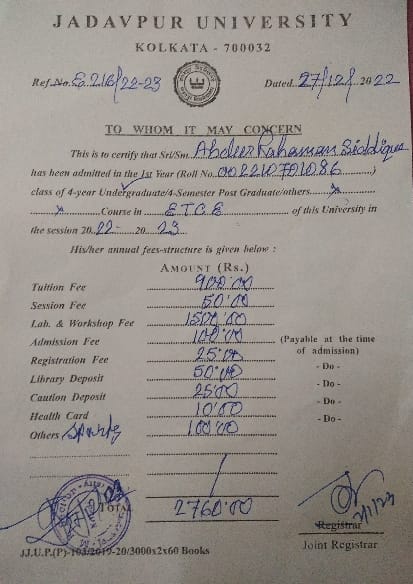 JADAVPUR UNIVERSITY
KOLKATA - 700032
Ref. No. E/216/22-23 Dated 27/12/2022
TO WHOM IT MAY CONCERN
This is to certify that Sri/Sm. Abdeer Rahaman Siddique
has been admitted in the 1st Year (Roll No. 002210701086)
class of 4-year Undergraduate/4-Semester Post Graduate/others x
x Course in ETCE of this University in
the session 2022- 2023
His/her annual fees-structure is given below :
AMOUNT (Rs.)
Tuition Fee 900.00
Session Fee 50.00
Lab. & Workshop Fee 1500.00
Admission Fee 100.00 (Payable at the time of admission)
Registration Fee 25.00 - Do -
Library Deposit 50.00 - Do -
Caution Deposit 25.00 - Do -
Health Card 10.00 - Do -
Others Sports 100.00
TOTAL 2760.00
Registrar
Joint Registrar
JJ.U.P.(P)-103/2019-20/3000x2x60 Books